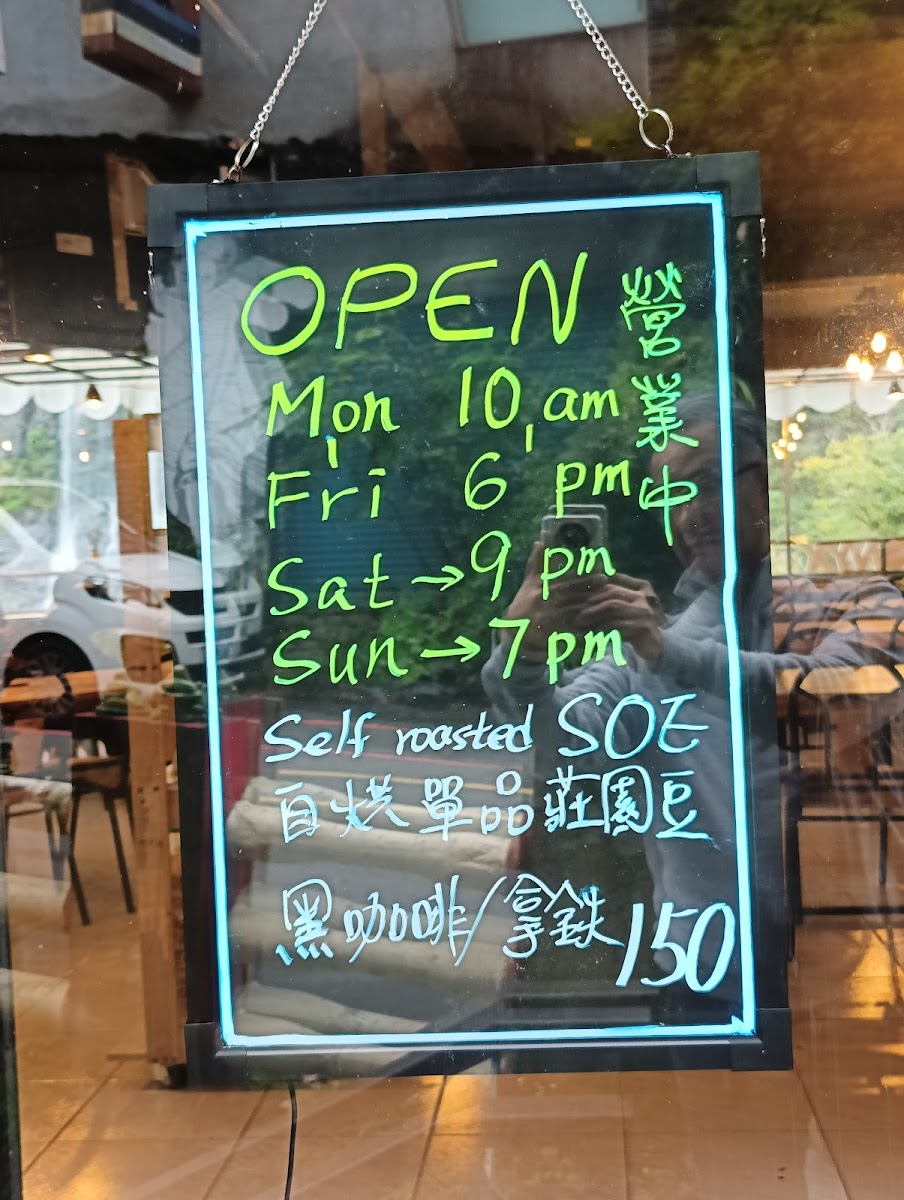 OPEN
營業中
Mon 10 am
Fri 6 pm
Sat→9 pm
Sun→7 pm
Self roasted SOE
自烘單品莊園豆
黑咖啡/拿鉄150